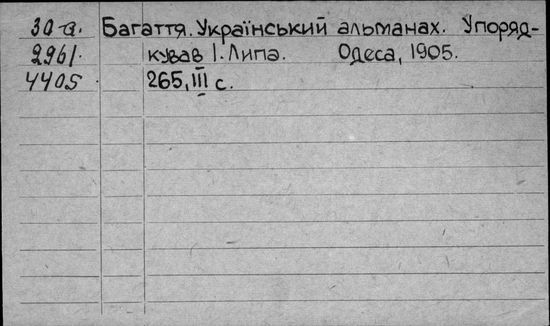 30 а. Багаття. Український альманах. Упоряд-
2961. кував І. Липа. Одеса, 1905.
4405 265, III с.